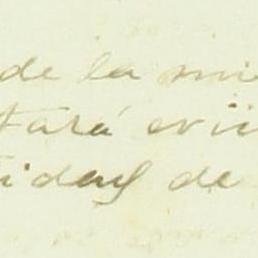 de la mi
tará evi
tidad de